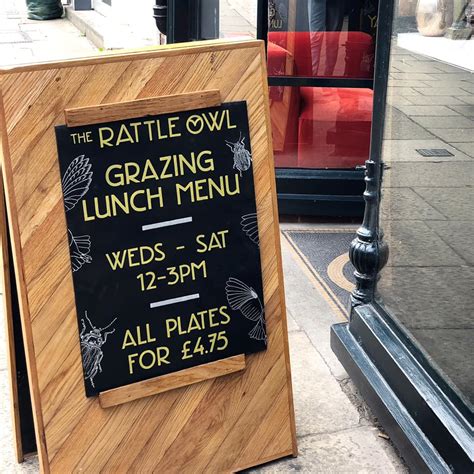 THE RATTLE OWL
GRAZING
LUNCH MENU
WEDS - SAT
12-3PM
ALL PLATES
FOR £4.75